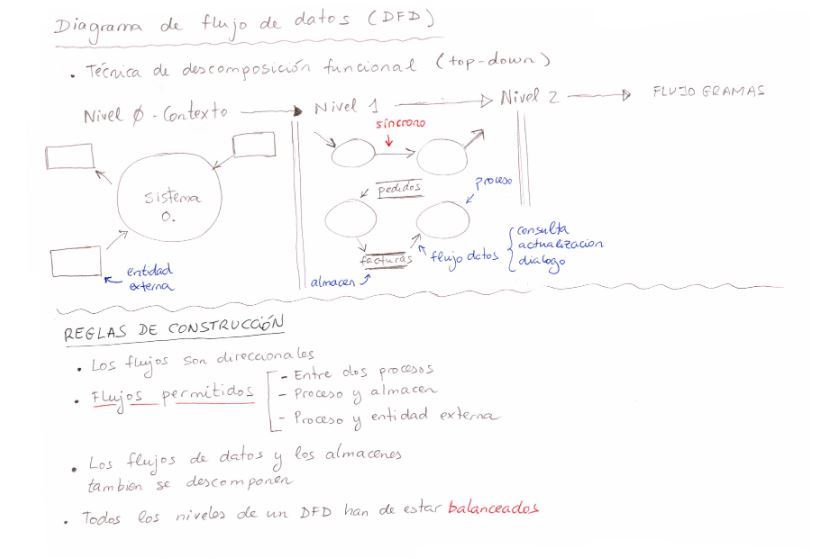 Diagrama de flujo de datos (DFD)
• Técnica de descomposición funcional (top-down)
Nivel Ø - Contexto → Nivel 1 → Nivel 2 → FLUJO GRAMAS
síncrono
sistema
0.
pedidos
proceso
facturas
flujo datos
consulta
actualización
dialogo
entidad
externa
almacen
REGLAS DE CONSTRUCCIÓN
• Los flujos son direccionales
• Flujos permitidos
- Entre dos procesos
- Proceso y almacen
- Proceso y entidad externa
• Los flujos de datos y los almacenes
también se descomponen
• Todos los niveles de un DFD han de estar balanceados